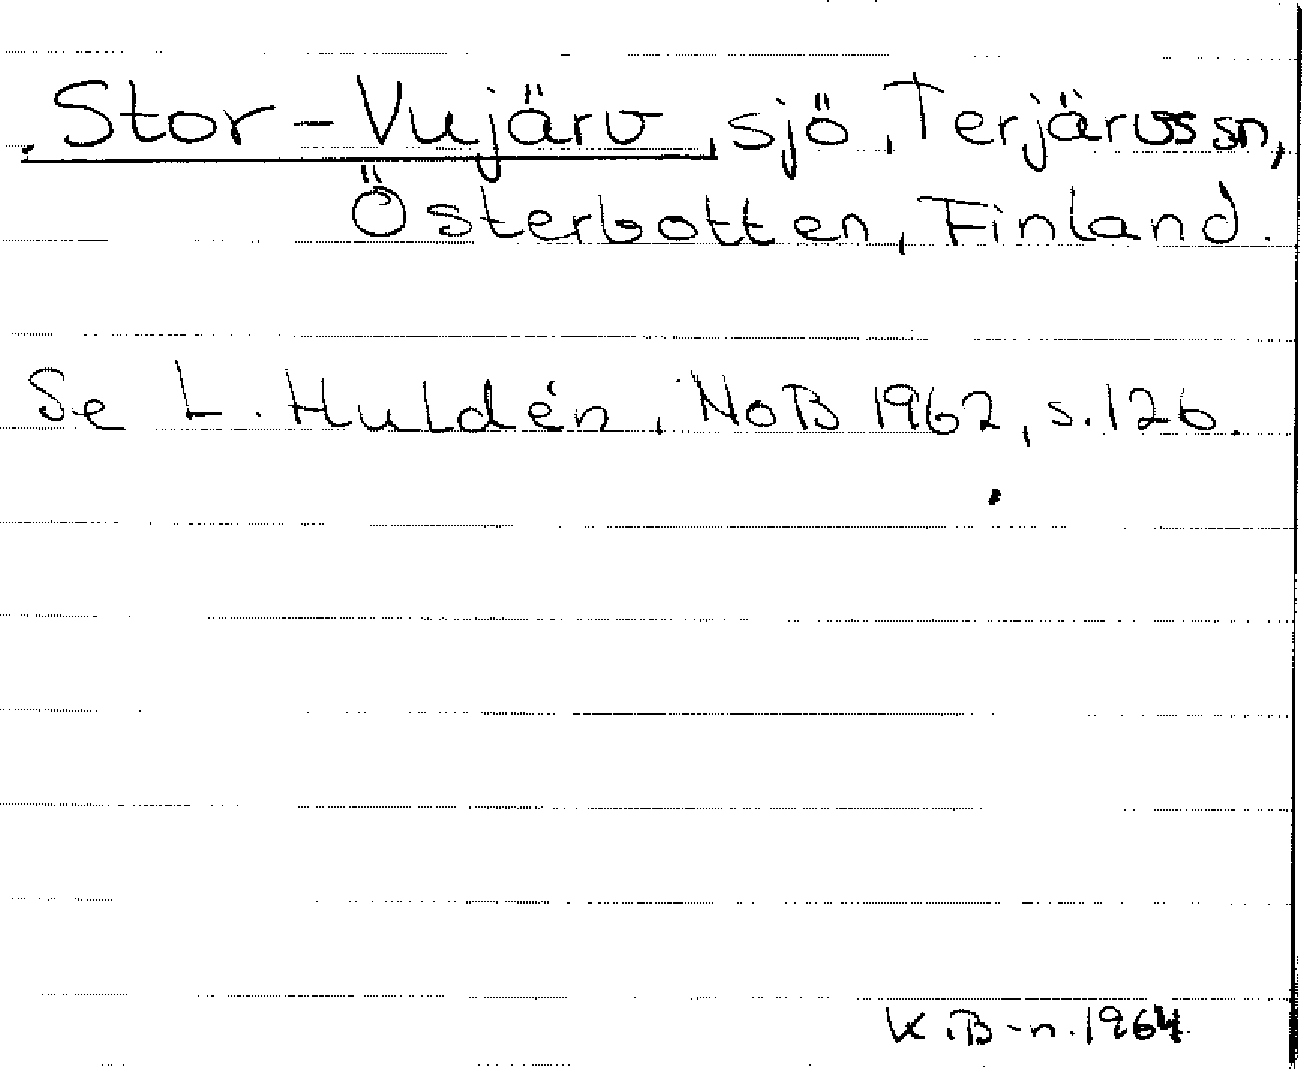 Stor-Vujärv, sjö, Terjärvs sn,
Österbotten, Finland.
Se L. Huldén, NoB 1962, s. 126.
K.B-n. 1964